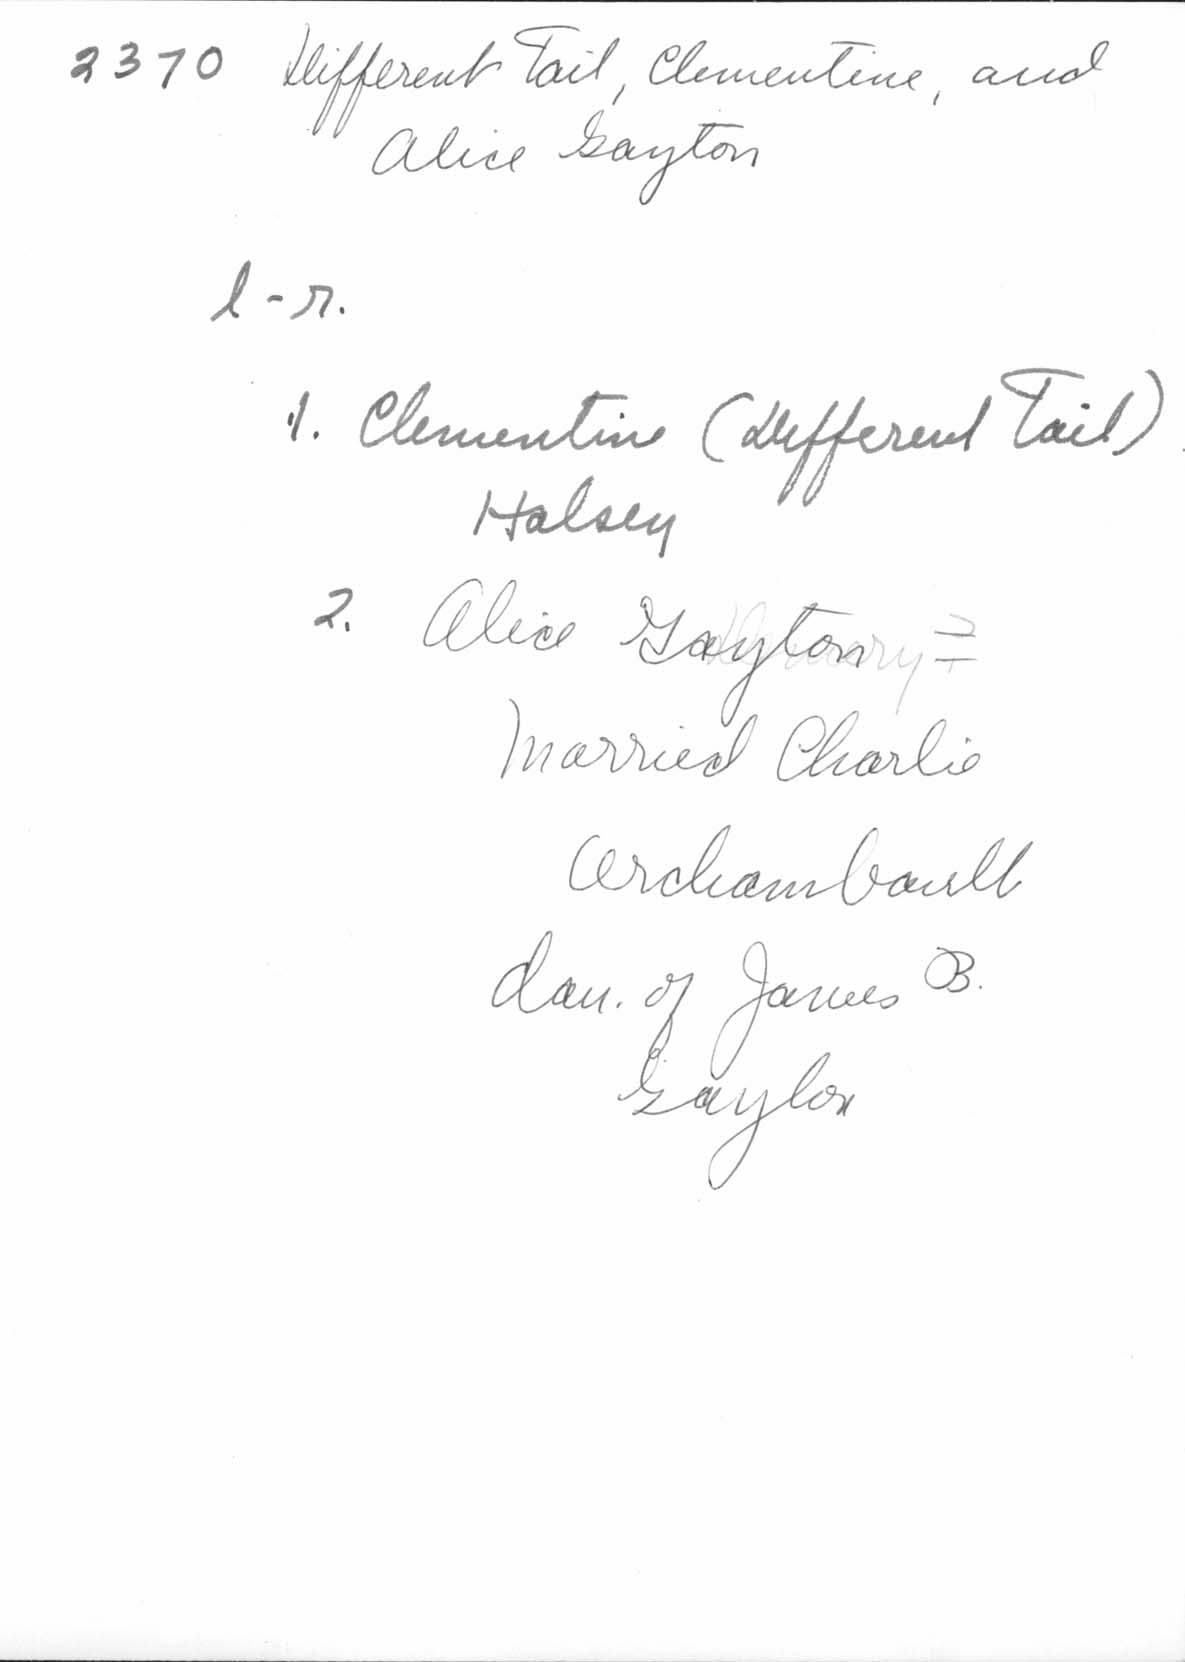 2370 Different Tail, Clementine, and
Alice Gayton
l-r.
1. Clementine (Different Tail)
Halsey
2. Alice Gayton
Married Charlie
Archambault
dau. of James B.
Gayton